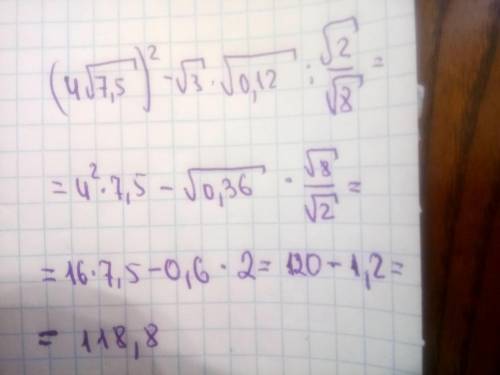 (4√7,5)² - √3 · √0,12 : √2/√8 =
= 4² · 7,5 - √0,36 · √8/√2 =
= 16 · 7,5 - 0,6 · 2 = 120 - 1,2 =
= 118,8